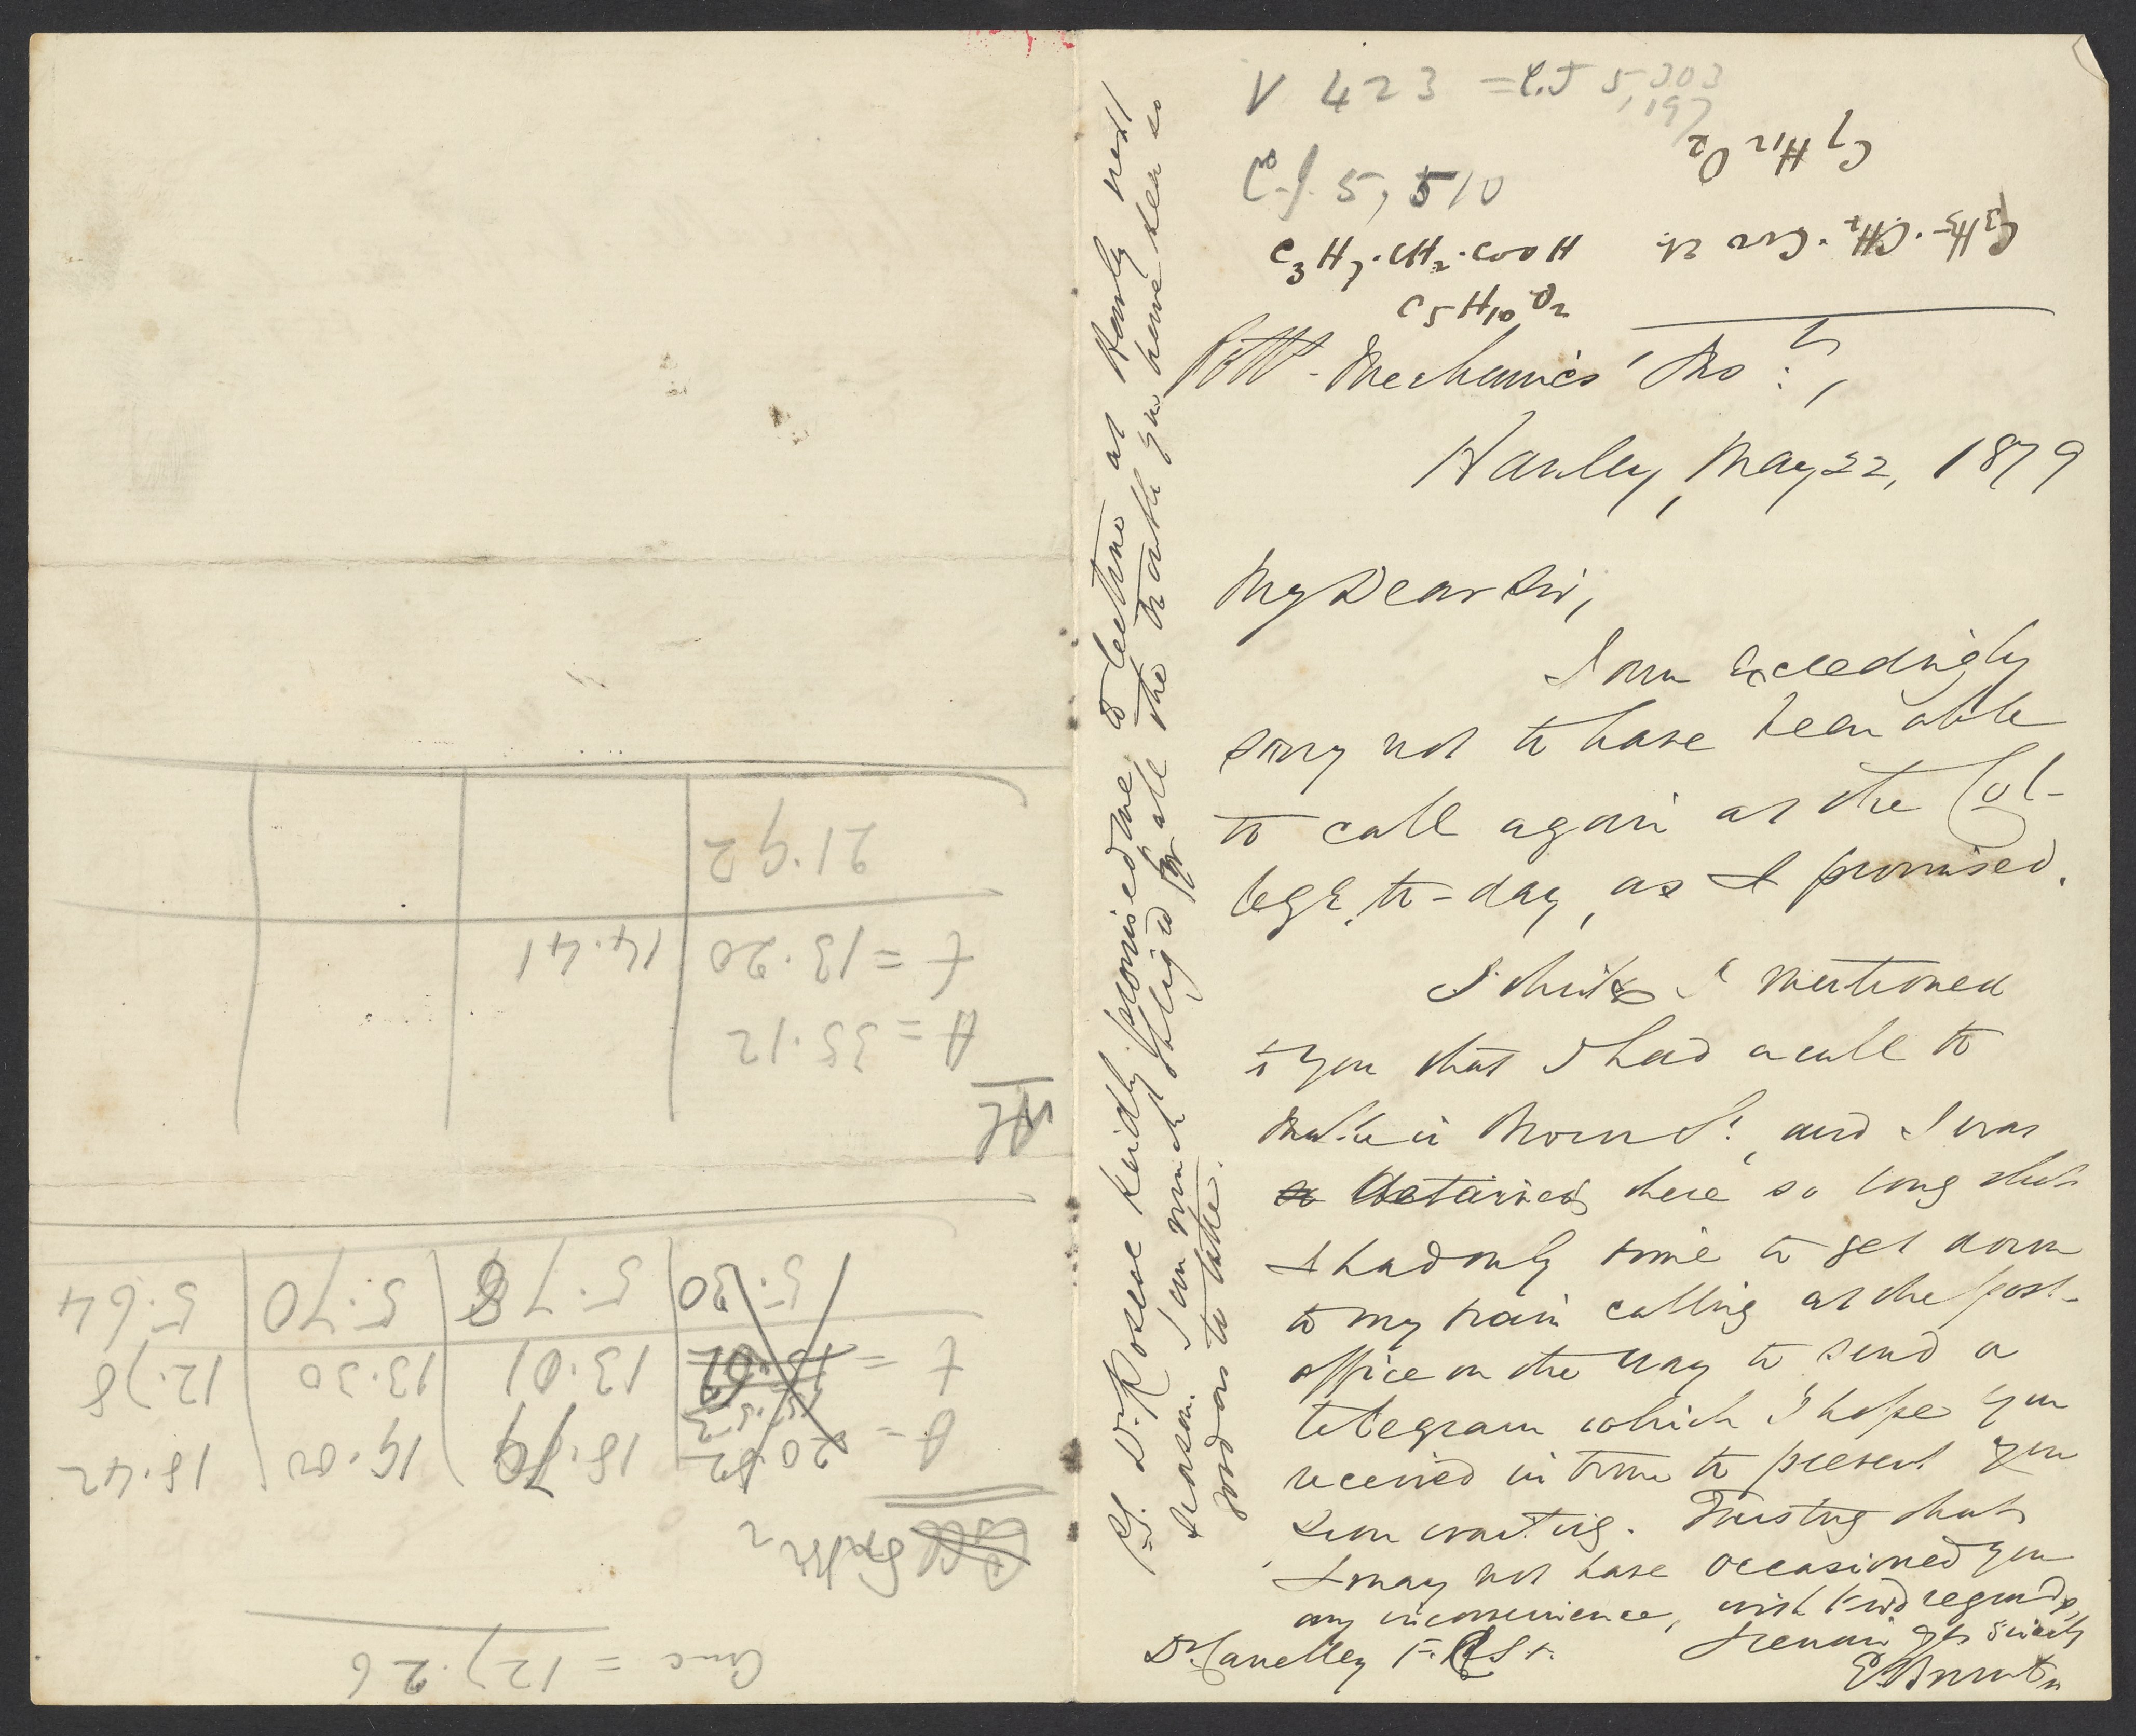 V 423 = C.J 5,303
,197
C.J. 5, 510
C7 H12 O2
C3H5.CH2.
C3H7.CH2.COOH
C5H10O2
Mechanics'
Hanley, May 22, 1879
My Dear Sir,
I am exceedingly
sorry not to have been able
to call again at the Col-
lege to-day, as I promised.
I think I mentioned
to you that I had a call to
make in and I was
detained there so long that
I had only time to get down
to my train calling at the post-
office on the way to send a
telegram which I hope you
received in time to prevent you
from waiting. Trusting that
I may not have occasioned you
any inconvenience, with kind regards,
I remain yrs sincerely
Dr. Carnelley F.C.S.
P.S. Dr. Roscoe kindly promised me to lecture at Hanley next
season. I am much obliged for all the trouble you have been so
good as to take.
= 127.26
A = 20.82 18.79 19.00 18.42
t = 13.01 13.30 12.78
5.30 5.78 5.70 5.64
A = 35.12
t = 13.20 14.41
21.92